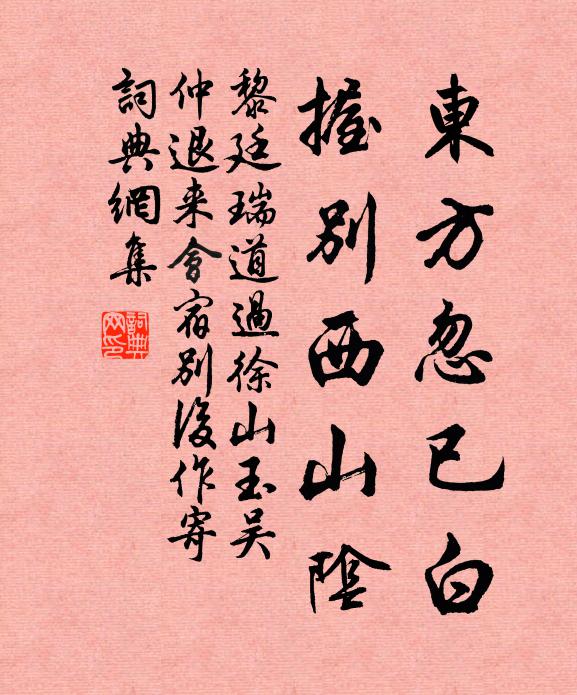 東方忽已白
握別西山陰
黎廷瑞道過徐山玉吴
仲退来會宿別後作寄
詞典網集
詞典網印